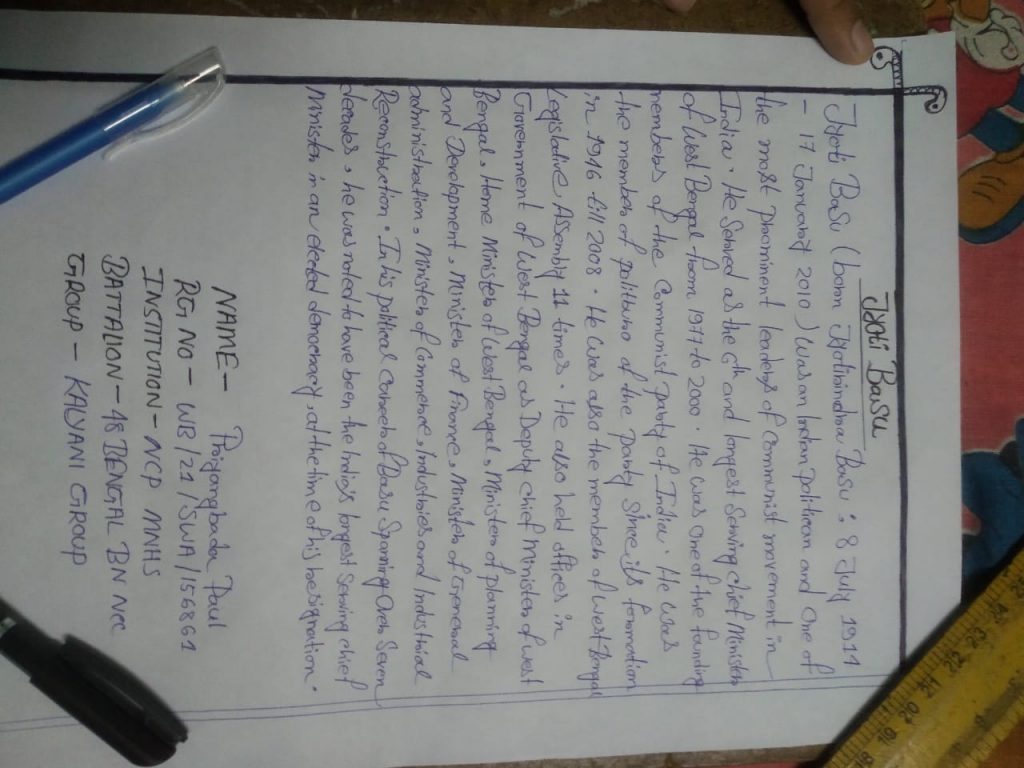 Jyoti Basu
Jyoti Basu (born Jyotirindra Basu ; 8 July 1914
- 17 January 2010) was an Indian politician and one of
the most prominent leaders of Communist movement in
India. He Served as the 6th and longest serving chief Minister
of West Bengal from 1977 to 2000. He was one of the funding
members of the Communist party of India. He was
the member of politburo of the party Since its formation
in 1946 till 2008. He was also the member of West Bengal
Legislative Assembly 11 times. He also held offices in
Government of West Bengal as Deputy chief Minister of west
Bengal, Home Minister of West Bengal, Minister of planning
and Development, Minister of Finance, Minister of General
administration, Minister of Commerce, Industries and Industrial
Reconstruction. In his political career of Basu Spanning over Seven
decades, he was noted to have been the India's longest Serving chief
Minister in an elected democracy, at the time of his resignation.
NAME - Priyangbada Paul
RG NO - WB/21/SWA/156861
INSTITUTION - NCP MNHS
BATTALION - 48 BENGAL BN NCC
GROUP - KALYANI GROUP
25 24 23 22 21 20 19 18